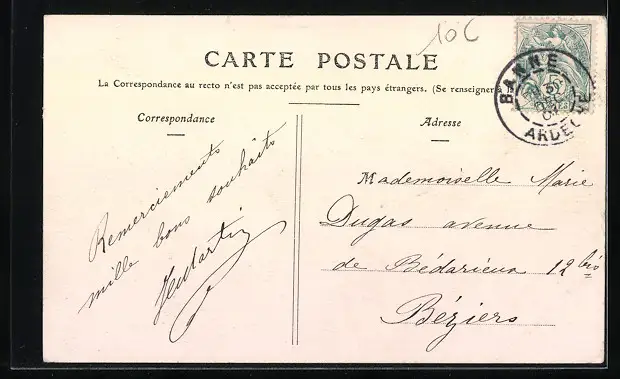 10C
CARTE POSTALE
La Correspondance au recto n'est pas acceptée par tous les pays étrangers. (Se renseigner à
BANNE
ARDECHE
Correspondance
Adresse
Remerciements
mille bons souhaits
Mademoiselle Marie
Dugas avenue
de Bédarieux 12 bis
Béziers